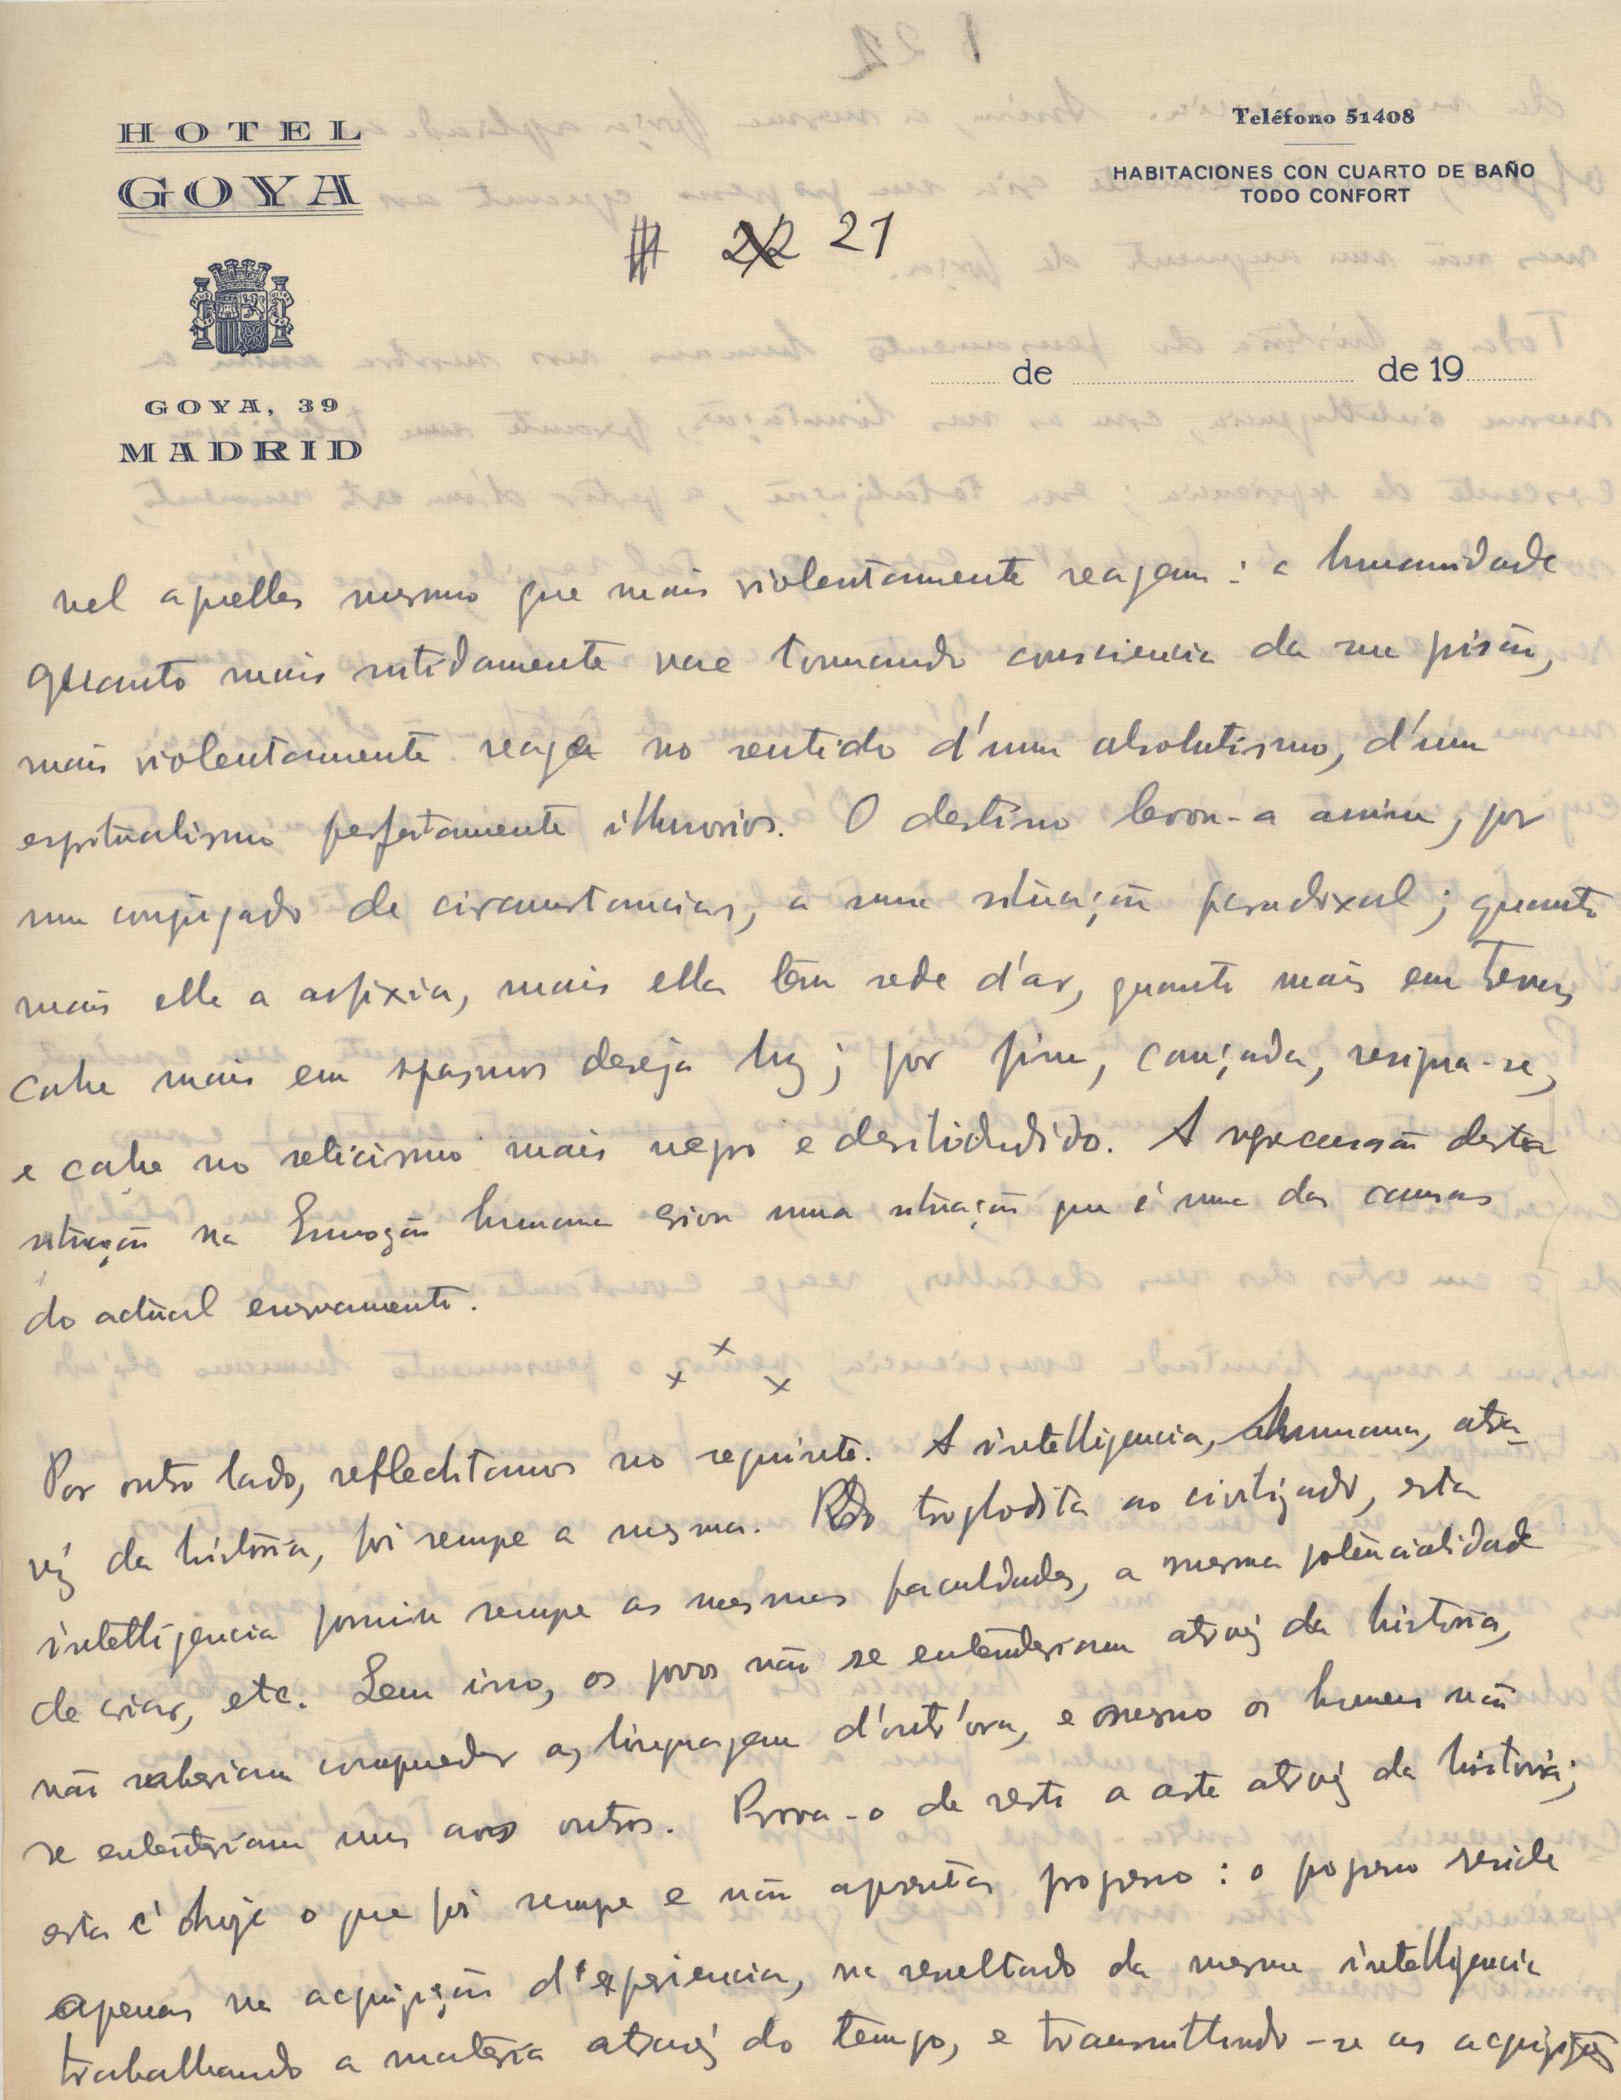 HOTEL
GOYA
GOYA, 39
MADRID
Teléfono 51408
HABITACIONES CON CUARTO DE BAÑO
TODO CONFORT
22 21
de de 19
nel aquelles mesmo que mais violentamente reagem : a humanidade
quanto mais nitidamente vae tomando consciencia da sua prisão,
mais violentamente reage no sentido d'um absolutismo, d'um
espiritualismo perfeitamente illusorios. O destino levou-a assim, por
um conjugado de circumstancias, a uma situação paradoxal ; quanto
mais elle a asfixia, mais ella tem sede d'ar, quanto mais em trevas
cahe mais em spasmos deseja luz ; por fim, cançada, resigna-se,
e cahe no scticismo mais negro e desiludido. A repercussão desta
situação na Emoção humana criou uma situação que é uma das causas
do actual enervamento.
x x x
Por outro lado, reflectitamos no seguinte. A intelligencia, humana, atra-
vez da história, foi sempre a mesma. Do troglodita ao civilizado, esta
intelligencia possuiu sempre as mesmas faculdades, a mesma potencialidade
de criar, etc. Sem isso, os povos não se entenderiam atravez da historia,
não saberiam comprender as linguagem d'outr'ora, e mesmo os homens não
se entenderiam uns aos outros. Prova-o de resto a arte atravez da historia;
esta é hoje o que foi sempre e não apresenta progresso : o progresso reside
apenas na acquisição d'experiencia, no resultado da mesma intelligencia
trabalhando a materia atravez do tempo, e transmittindo-se as acquisições